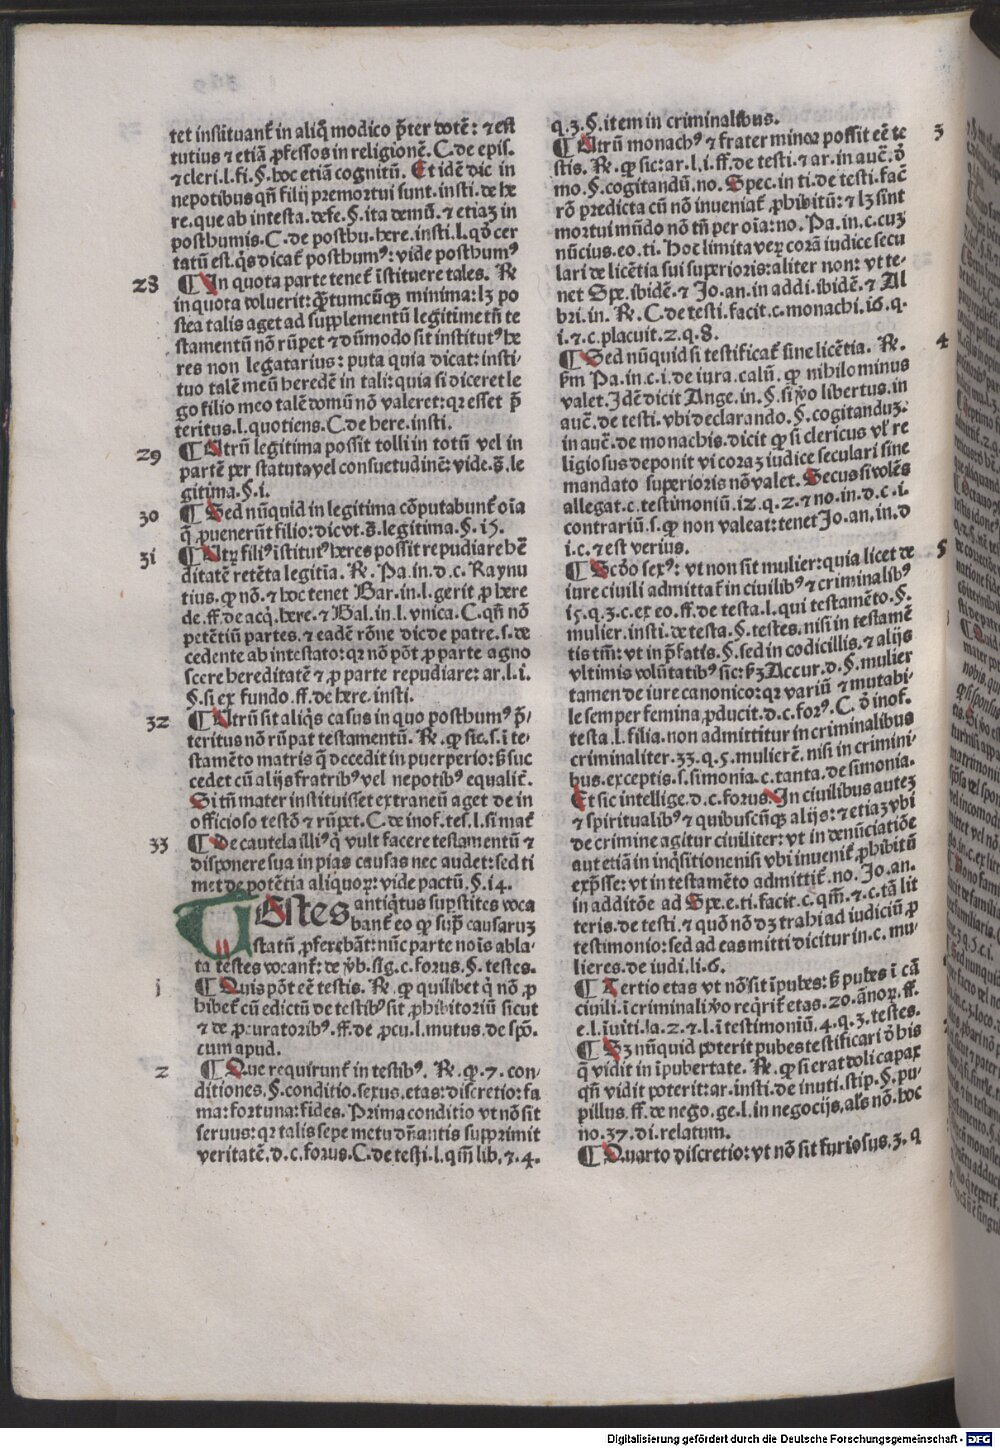 tet instituant̃ in aliq̃ modico p̃ter dotē: ⁊ est
tutius ⁊ etiā ꝓfessos in religionē. C. de epis.
⁊ cleri. l. fi. §. hoc etiā cognitū. Et idē dic in
nepotibus qñ filij premortui sunt. insti. de he
re. que ab intesta. defe. §. ita demū. ⁊ etiaꝫ in
posthumis. C. de posthu. here. insti. l. qđ cer
tatū est. q̇s dicat̃ posthumꝰ: vide posthumꝰ
28 ¶ In quota parte tenet̃ īstituere tales. ℞.
in quota voluerit: q̃ꝫtumcūqꝫ minima: lꝫ po
stea talis aget ad supplementū legitime tñ te
stamentū nō rūpet ⁊ dūmodo sit institutꝰ he
res non legatarius: puta quia dicat: insti-
tuo talē meū heredē in tali: quia si diceret le
go filio meo talē domū nō valeret: qꝛ esset p̃
teritus. l. quotiens. C. de here. insti.
29 ¶ Utrū legitima possit tolli in totū vel in
partē per statuta vel consuetudinē: vide. s̄. le
gitima. §. i.
30 ¶ Sed nūquid in legitima cōputabunt̃ oīa
q̄ ꝓuenerūt filio: dic vt. s̄. legitima. §. i5.
3i ¶ Utꝝ filiꝰ īstitutꝰ heres possit repudiare he
ditatē retēta legitīa. ℞. Pa. in. d. c. Raynu
tius. ꝙ nō. ⁊ hoc tenet Bar. in. l. gerit ꝓ here
de. ff. de acq̇. here. ⁊ Bal. in. l. vnica. C. qñ nō
petētiū partes. ⁊ eadē rōne dic de patre. s. de
cedente ab intestato: qꝛ nō pōt ꝓ parte agno
scere hereditatē ⁊ ꝓ parte repudiare: ar. l. i.
§. si ex fundo. ff. de here. insti.
32 ¶ Utrū sit aliq̇s casus in quo posthumꝰ p̃-
teritus nō rūpat testamentū. ℞. ꝙ sic. s. ī te-
stamēto matris q̄ decedit in puerperio: ß suc
cedet cū alijs fratribꝰ vel nepotibꝰ equalit̃.
Si tñ mater instituisset extraneū aget de in
officioso testō ⁊ rūpet. C. de inof. tes. l. si mat̃
33 ¶ De cautela illiꝰ q̇ vult facere testamentū ⁊
disponere sua in pias causas nec audet: sed ti
met de potētia aliquoꝝ: vide pactū. §. i4.
TEstes antiq̇tus supstites voca
bant̃ eo ꝙ sup̃ causaruꝫ
statū ꝓferebāt: nūc parte noīs abla-
ta testes vocant̃: de v̓b. sig. c. forus. §. testes.
i ¶ Quis pōt eē testis. ℞. ꝙ quilibet q̇ nō ꝓ
hibet̃ cū edictū de testibꝰ sit ꝓhibitoriū sicut
⁊ de ꝓcuratoribꝰ. ff. de ꝓcu. l. mutus. de spō.
cum apud.
2 ¶ Que requirunt̃ in testibꝰ. ℞. ꝙ. 7. con-
ditiones. §. conditio. sexus. etas: discretio: fa
ma: fortuna: fides. Prima conditio vt nō sit
seruus: qꝛ talis sepe metu dñantis supprimit
veritatē. d. c. forus. C. de testi. l. qm̄ lib. ⁊. 4.
q. 3. §. item in criminalibus.
¶ Utrū monachꝰ ⁊ frater minor possit eē te 3
stis. ℞. ꝙ sic: ar. l. i. ff. de testi. ⁊ ar. in auc̄. đ
mo. §. cogitandū. no. Spec. in ti. de testi. fac̄
rō predicta cū nō inueniat̃ ꝓhibitū: ⁊ lꝫ sint
mortui mūdo nō tñ per oīa: no. Pa. in. c. cuꝫ
nūcius. eo. ti. Hoc limita veꝝ corā iudice secu
lari de licētia sui superioris: aliter non: vt te-
net Spe. ibidē. ⁊ Jo. an. in addi. ibidē. ⁊ Al
bri. in. R. C. de testi. facit. c. monachi. i6. q.
i. ⁊. c. placuit. 2. q. 8.
¶ Sed nūquid si testificat̃ sine licētia. ℞. 4
ẜm Pa. in. c. i. de iura. calū. ꝙ nihilominus
valet. Idē dicit Ange. in. §. si v̓o libertus. in
auc̄. de testi. vbi declarando. §. cogitanduꝫ.
in auc̄. de monachis. dicit ꝙ si clericus vl̓ re
ligiosus deponit vi coraꝫ iudice seculari sine
mandato superioris nō valet. Secus si volēs
allegat. c. testimoniū. i2. q. 2. ⁊ no. in. d. c. i.
contrariū. s. ꝙ non valeat: tenet Jo. an. in. d
i. c. ⁊ est verius.
¶ Scđo sexꝰ: vt non sit mulier: quia licet de 5
iure ciuili admittat̃ in ciuilibꝰ ⁊ criminalibꝰ
i5. q. 3. c. ex eo. ff. de testa. l. qui testamēto. §.
mulier. insti. de testa. §. testes. nisi in testamē
tis tm̄: vt in p̃fatis. §. sed in codicillis. ⁊ alijs
vltimis volūtatibꝰ sic: ẜꝫ Accur. d. §. mulier
tamen de iure canonico: qꝛ variū ⁊ mutabi-
le semper femina ꝓducit. d. c. forꝰ. C. đ inof.
testa. l. filia. non admittitur in criminalibus
criminaliter. 33. q. 5. mulierē. nisi in crimini-
bus. exceptis. s. simonia. c. tanta. de simonia.
Et sic intellige. d. c. forus. In ciuilibus auteꝫ
⁊ spiritualibꝰ ⁊ quibuscūqꝫ alijs: ⁊ etiaꝫ vbi
de crimine agitur ciuiliter: vt in denūciatiōe
aut etiā in inq̇sitione nisi vbi inuenit̃ ꝓhibitū
exp̄sse: vt in testamēto admittit̃. no. Jo. an.
in additōe ad Spe. e. ti. facit. c. qm̄. ⁊. c. tā lit
teris. de testi. ⁊ quō nō dꝫ trahi ad iudiciū ꝓ
testimonio: sed ad eas mitti dicitur in. c. mu-
lieres. de iudi. li. 6.
¶ Tertio etas vt nō sit īpubes: ß pubes ī cā
ciuili. ī criminali v̓o req̇rit̃ etas. 20. ānoꝝ. ff.
e. l. īuiti. la. 2. ⁊. l. ī testimoniū. 4. q. 3. testes.
¶ Sꝫ nūquid poterit pubes testificari đ his
q̄ vidit in īpubertate. ℞. ꝙ si erat doli capax
qñ vidit poterit: ar. insti. de inuti. stip. §. pu-
pillus. ff. de nego. ge. l. in negocijs. al̓s nō. hoc
no. 37. di. relatum.
¶ Quarto discretio: vt nō sit furiosus. 3. q
Digitalisierung gefördert durch die Deutsche Forschungsgemeinschaft - DFG